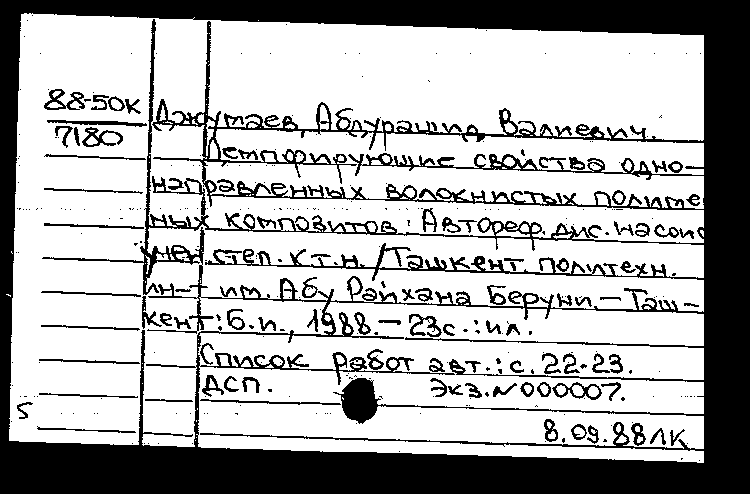 88-50К
7180
Джумаев, Абдурашид Валиевич.
Демпфирующие свойства одно-
направленных волокнистых полиме
ных композитов: Автореф. дис. на соис
учен. степ. к.т.н. / Ташкент. политехн.
ин-т им. Абу Райхана Беруни. — Таш-
кент: Б.и., 1988. — 23с.: ил.
Список работ авт.: с. 22-23.
ДСП. Экз. N 000007.
5
8.09.88 ЛК